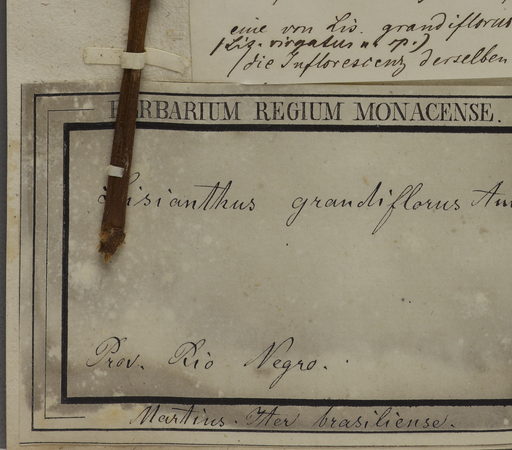 eine von Lis. grandiflorus
(Lis. virgatus n. sp.)
(die Inflorescenz derselben
HERBARIUM REGIUM MONACENSE.
Lisianthus grandiflorus
Prov. Rio Negro.
Martius. Iter brasiliense.